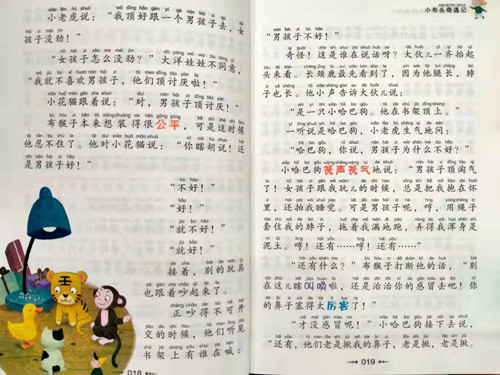 小老虎说：“我顶好跟一个男孩子去，女
孩子没劲！”
“女孩子怎么没劲？”大洋娃娃不同意，
“我就不喜欢男孩子，他们顶讨厌啦！”
小花猫跟着说：“对，男孩子顶讨厌！”
布猴子本来想装得很公平，可是这时候
他忍不住了。他对小花猫说：“你瞎胡说！还
是男孩子好！”
“不好！”
“好！”
“就不好！”
“就好！”
接着，别的玩具
也跟着吵起来了。
正吵得不可开
交的时候，他们听见
书架上有谁在喊：
018
小布头奇遇记
“男孩子不好！”
奇怪！这是谁在说话呀？大伙儿一齐抬起
头来看。长颈鹿最先看到了，因为他腿长，脖
子也长。他小声告诉大伙儿：
“是一只小哈巴狗，他在书架顶上。”
一听说是哈巴狗，小老虎生气地问：
“哈巴狗，你说，男孩子有什么不好？”
小哈巴狗瓮声瓮气地说：“男孩子顶淘气
了！女孩子跟我玩儿的时候，总是把我抱在怀
里，还拍我睡觉。可是男孩子呢，哼，用绳子
套住我的脖子，拖着我满地跑，弄得我浑身是
泥土。哼！还有……哼！还有……”
“还有什么？”布猴子打断他的话，“别
在这儿瞎叫唤啦，还是治治你的感冒去吧！你
的鼻子塞得太厉害了！”
“才没感冒呢！”小哈巴狗接下去说，
“还有，他们老是揪我的鼻子，老是揪，老是揪。
019